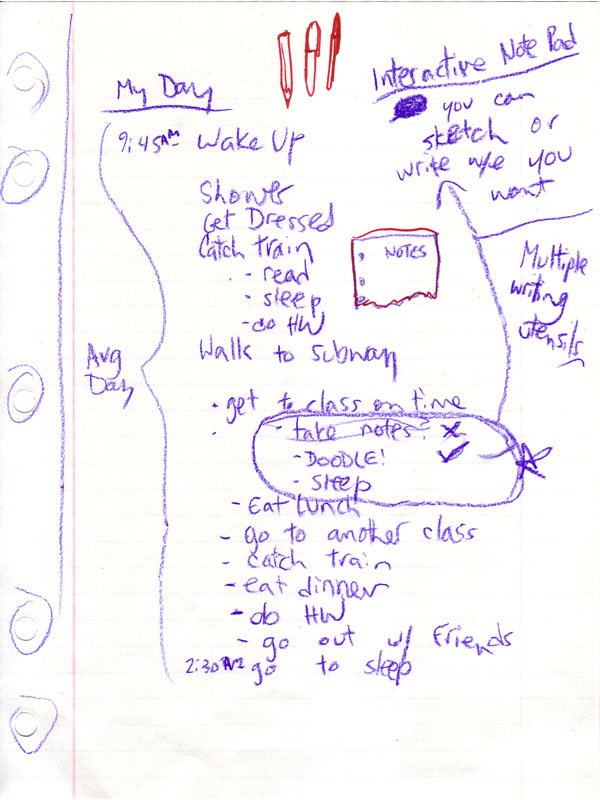 My Day
9:45AM Wake Up
Shower
Get Dressed
Catch train
- read
- sleep
- do HW
Walk to subway
· get to class on time
- take notes? x
- DOODLE! ✓
- sleep
- Eat Lunch
- go to another class
- catch train
- eat dinner
- do HW
- go out w/ Friends
2:30AM go to sleep
Avg
Day
NOTES
Interactive Note Pad
you can
sketch or
write w/e you
want
Multiple
writing
utensils